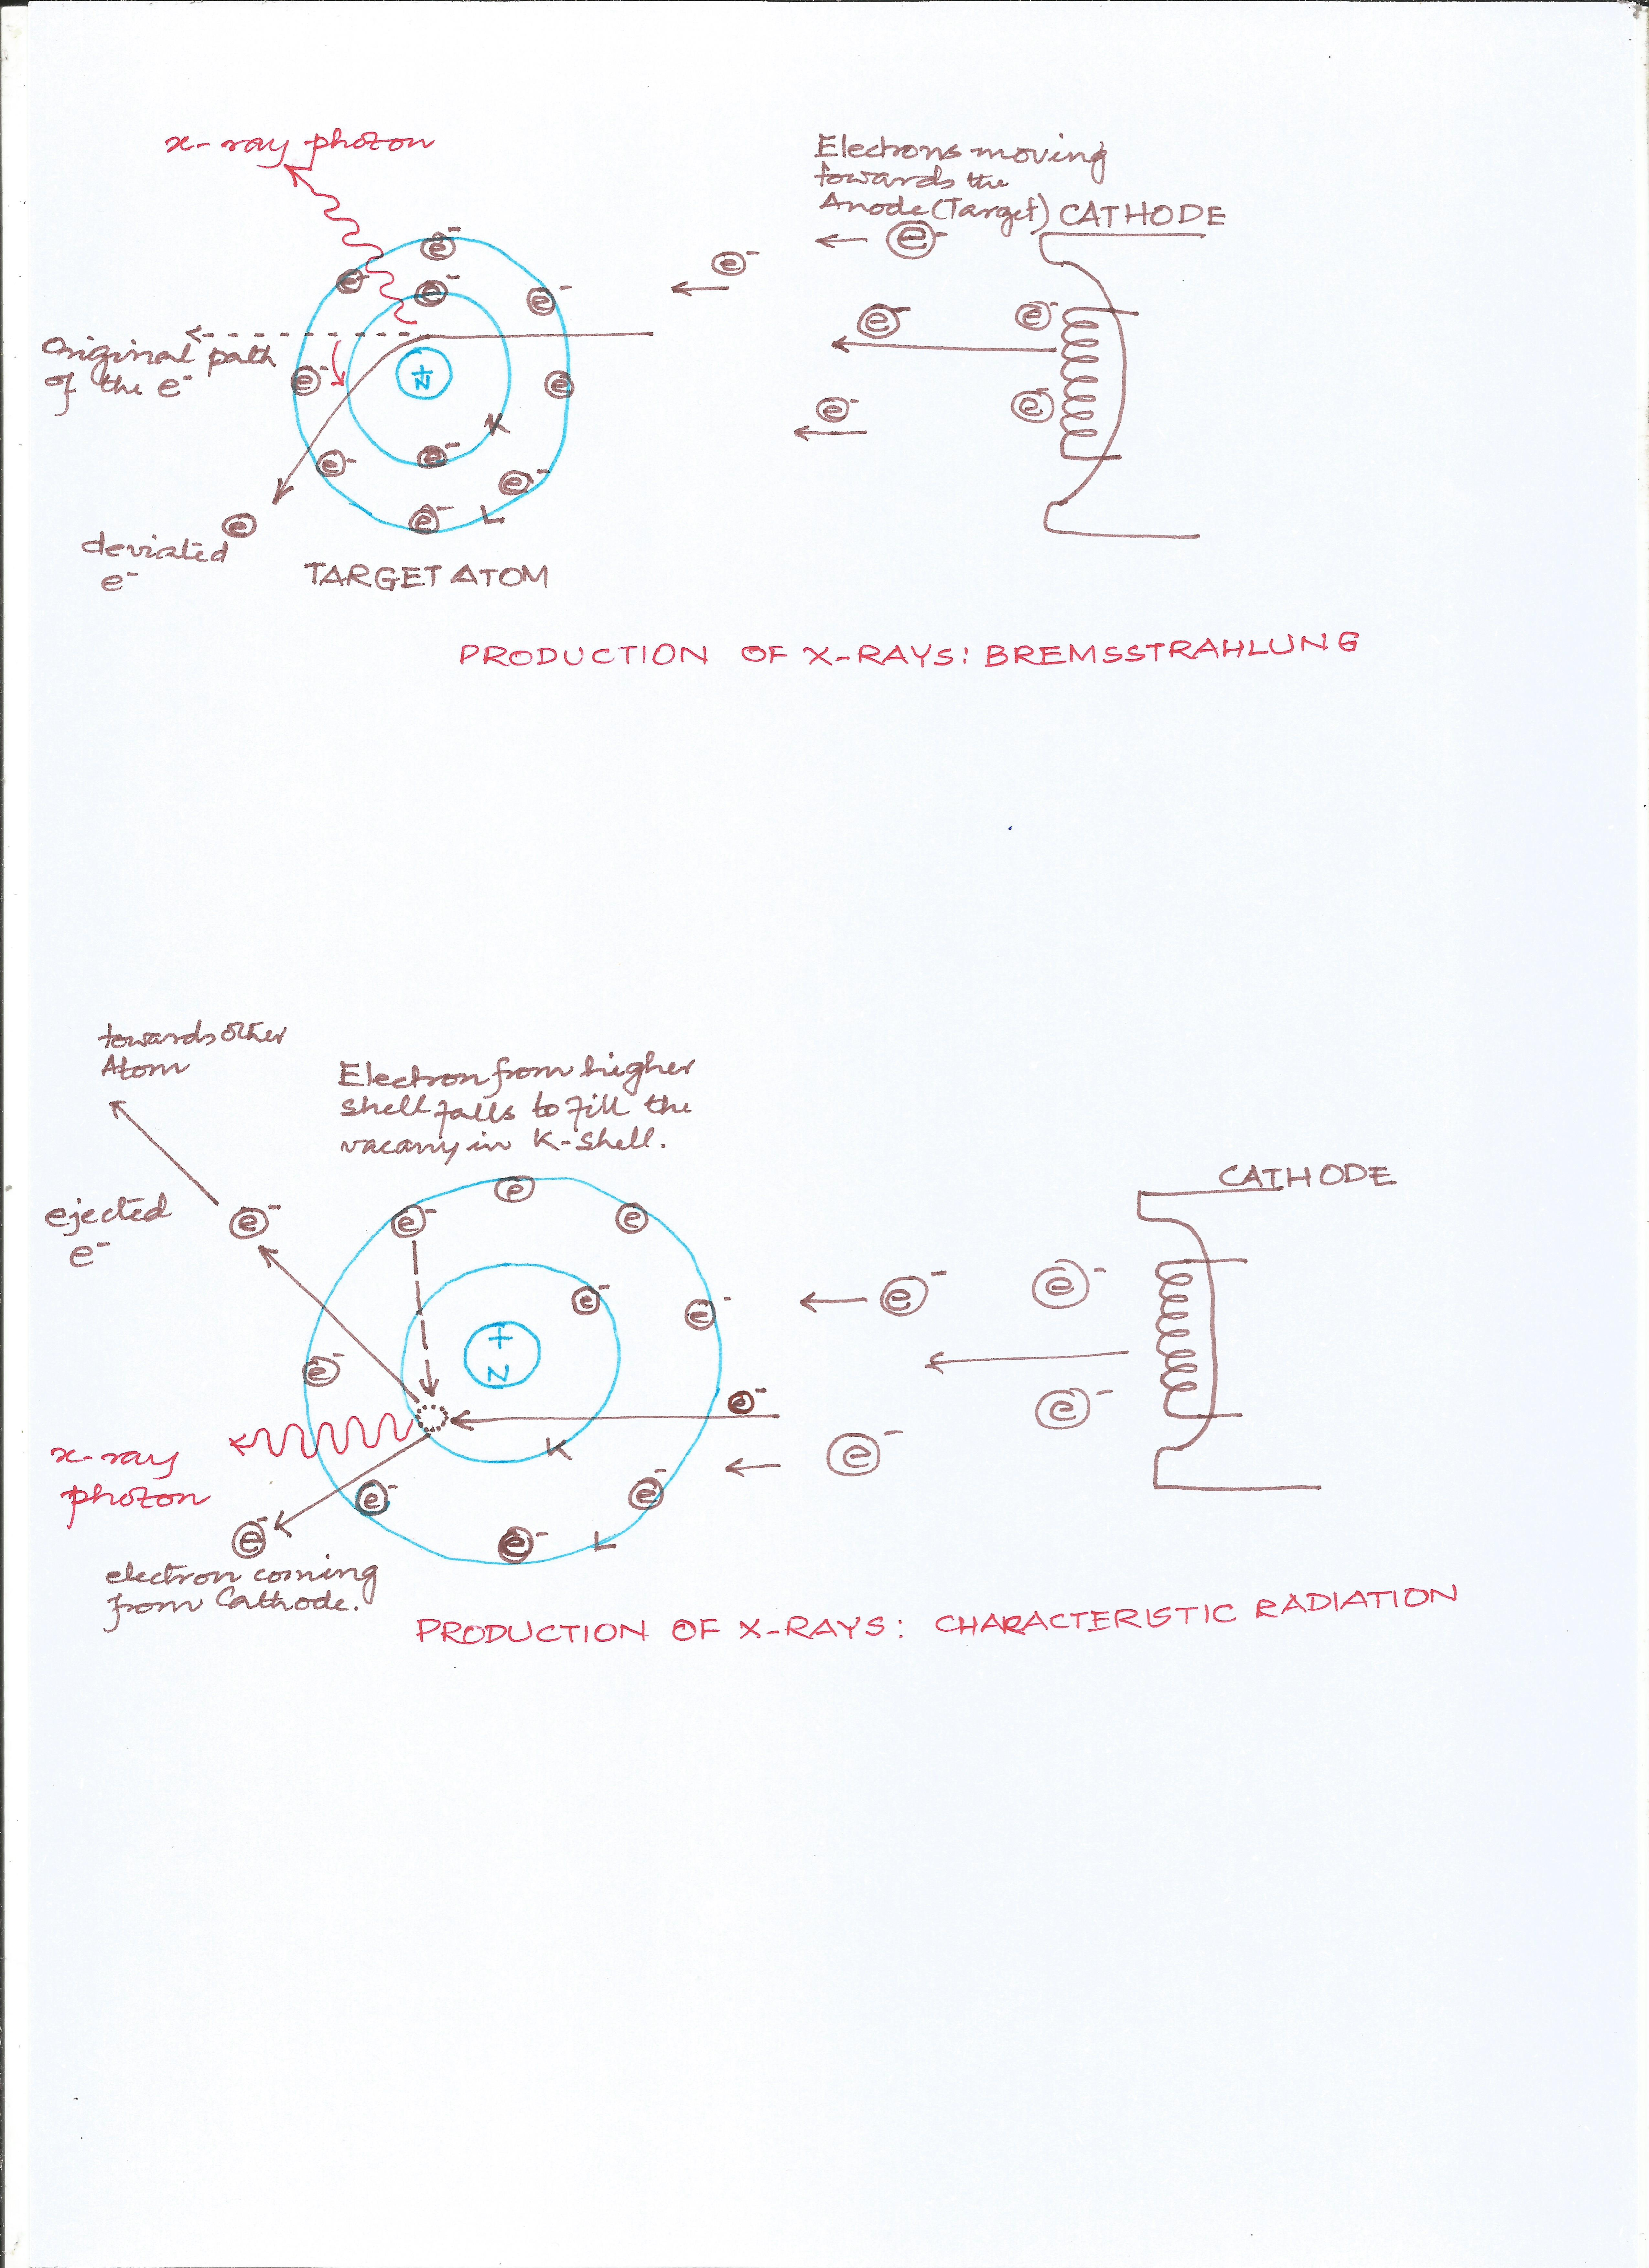 x-ray photon
Electrons moving
towards the
Anode (Target) CATHODE
e⁻
e⁻
e⁻
e⁻
e⁻
e⁻
e⁻
e⁻
e⁻
e⁻
Original path
of the e⁻
e⁻
e
+
N
e⁻
e⁻
K
e⁻
e⁻
e⁻
e⁻
L
e
deviated
e⁻
TARGET ATOM
PRODUCTION OF X-RAYS: BREMSSTRAHLUNG
towards other
Atom
Electron from higher
shell falls to fill the
vacany in K-shell.
CATHODE
ejected
e⁻
e⁻
e⁻
e
e
e⁻
e⁻
e⁻
e⁻
+
N
e⁻
e⁻
e⁻
e⁻
K
x-ray
photon
e⁻
e⁻
e⁻
e⁻
L
electron coming
from Cathode.
PRODUCTION OF X-RAYS: CHARACTERISTIC RADIATION